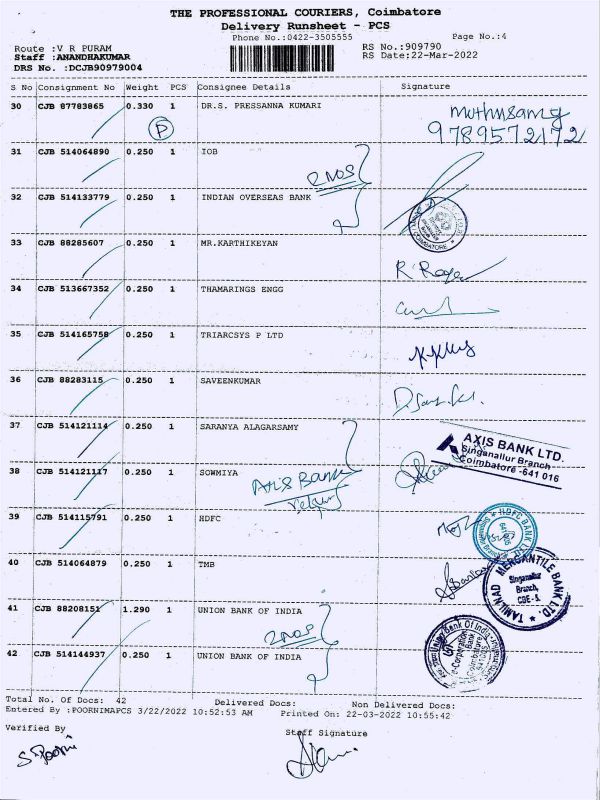 THE PROFESSIONAL COURIERS, Coimbatore
Delivery Runsheet - PCS
Phone No.:0422-3505555
Page No.:4
Route :V R PURAM
RS No.:909790
Staff :ANANDHAKUMAR
RS Date:22-Mar-2022
DRS No. :DCJB90979004
S No Consignment No Weight PCS Consignee Details Signature
30 CJB 87783865 0.330 1 DR.S. PRESSANNA KUMARI
P
9789572172
31 CJB 514064890 0.250 1 IOB
2NOS
32 CJB 514133779 0.250 1 INDIAN OVERSEAS BANK
COIMBATORE
33 CJB 88285607 0.250 1 MR.KARTHIKEYAN
34 CJB 513667352 0.250 1 THAMARINGS ENGG
35 CJB 514165758 0.250 1 TRIARCSYS P LTD
36 CJB 88283115 0.250 1 SAVEENKUMAR
37 CJB 514121114 0.250 1 SARANYA ALAGARSAMY
AXIS BANK LTD.
Singanallur Branch
Coimbatore -641 016
38 CJB 514121117 0.250 1 SOWMIYA
Axis Bank
39 CJB 514115791 0.250 1 HDFC
HDFC BANK LTD
40 CJB 514064879 0.250 1 TMB
TAMILNAD MERCANTILE BANK LTD.
Singanallur
Branch,
CBE - 5.
41 CJB 88208151 1.290 1 UNION BANK OF INDIA
2NOS
42 CJB 514144937 0.250 1 UNION BANK OF INDIA
Total No. Of Docs: 42 Delivered Docs: Non Delivered Docs:
Entered By :POORNIMAPCS 3/22/2022 10:52:53 AM Printed On: 22-03-2022 10:55:42
Verified By
Staff Signature
S. Poorni